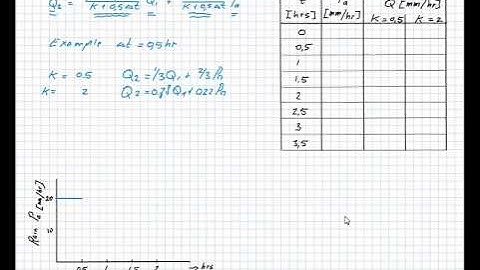 Q₂ = Q₁ + Pₐ
K + 0,5 Δt K + 0,5 Δt
Example Δt = 0,5 hr
K = 0.5 Q₂ = 1/3 Q₁ + 2/3 Pₙ
K = 2 Q₂ = Q₁ + 0.22 Pₙ
t Q [mm/hr]
[hrs] [mm/hr] K = 0,5 K = 2
0
0,5
1
1.5
2
2,5
3
3,5
Rain Pₐ [mm/hr]
20
10
0.5 1 1.5 2 → hrs